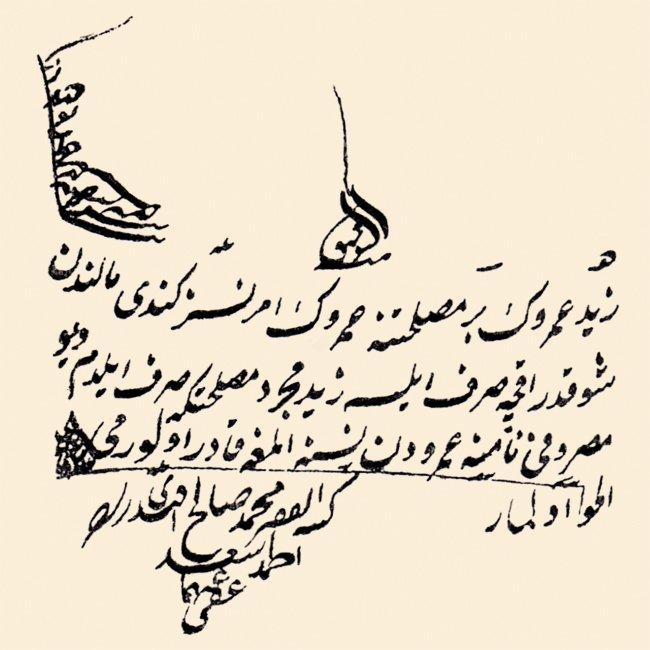 منه التوفيق
زيد عمروك بر مصلحتنه عمروك امرنسز كندى مالندن
شو قدر اقچه صرف ايلسه زيد مجرد مصلحتكه صرف ايلدم ديو
مصروفى نامينه عمرودن نسنه المغه قادر اولورمى
الجواب اولماز
كتبه الفقير محمد صالح افنديزاده
احمد اسعد
عفى عنهما